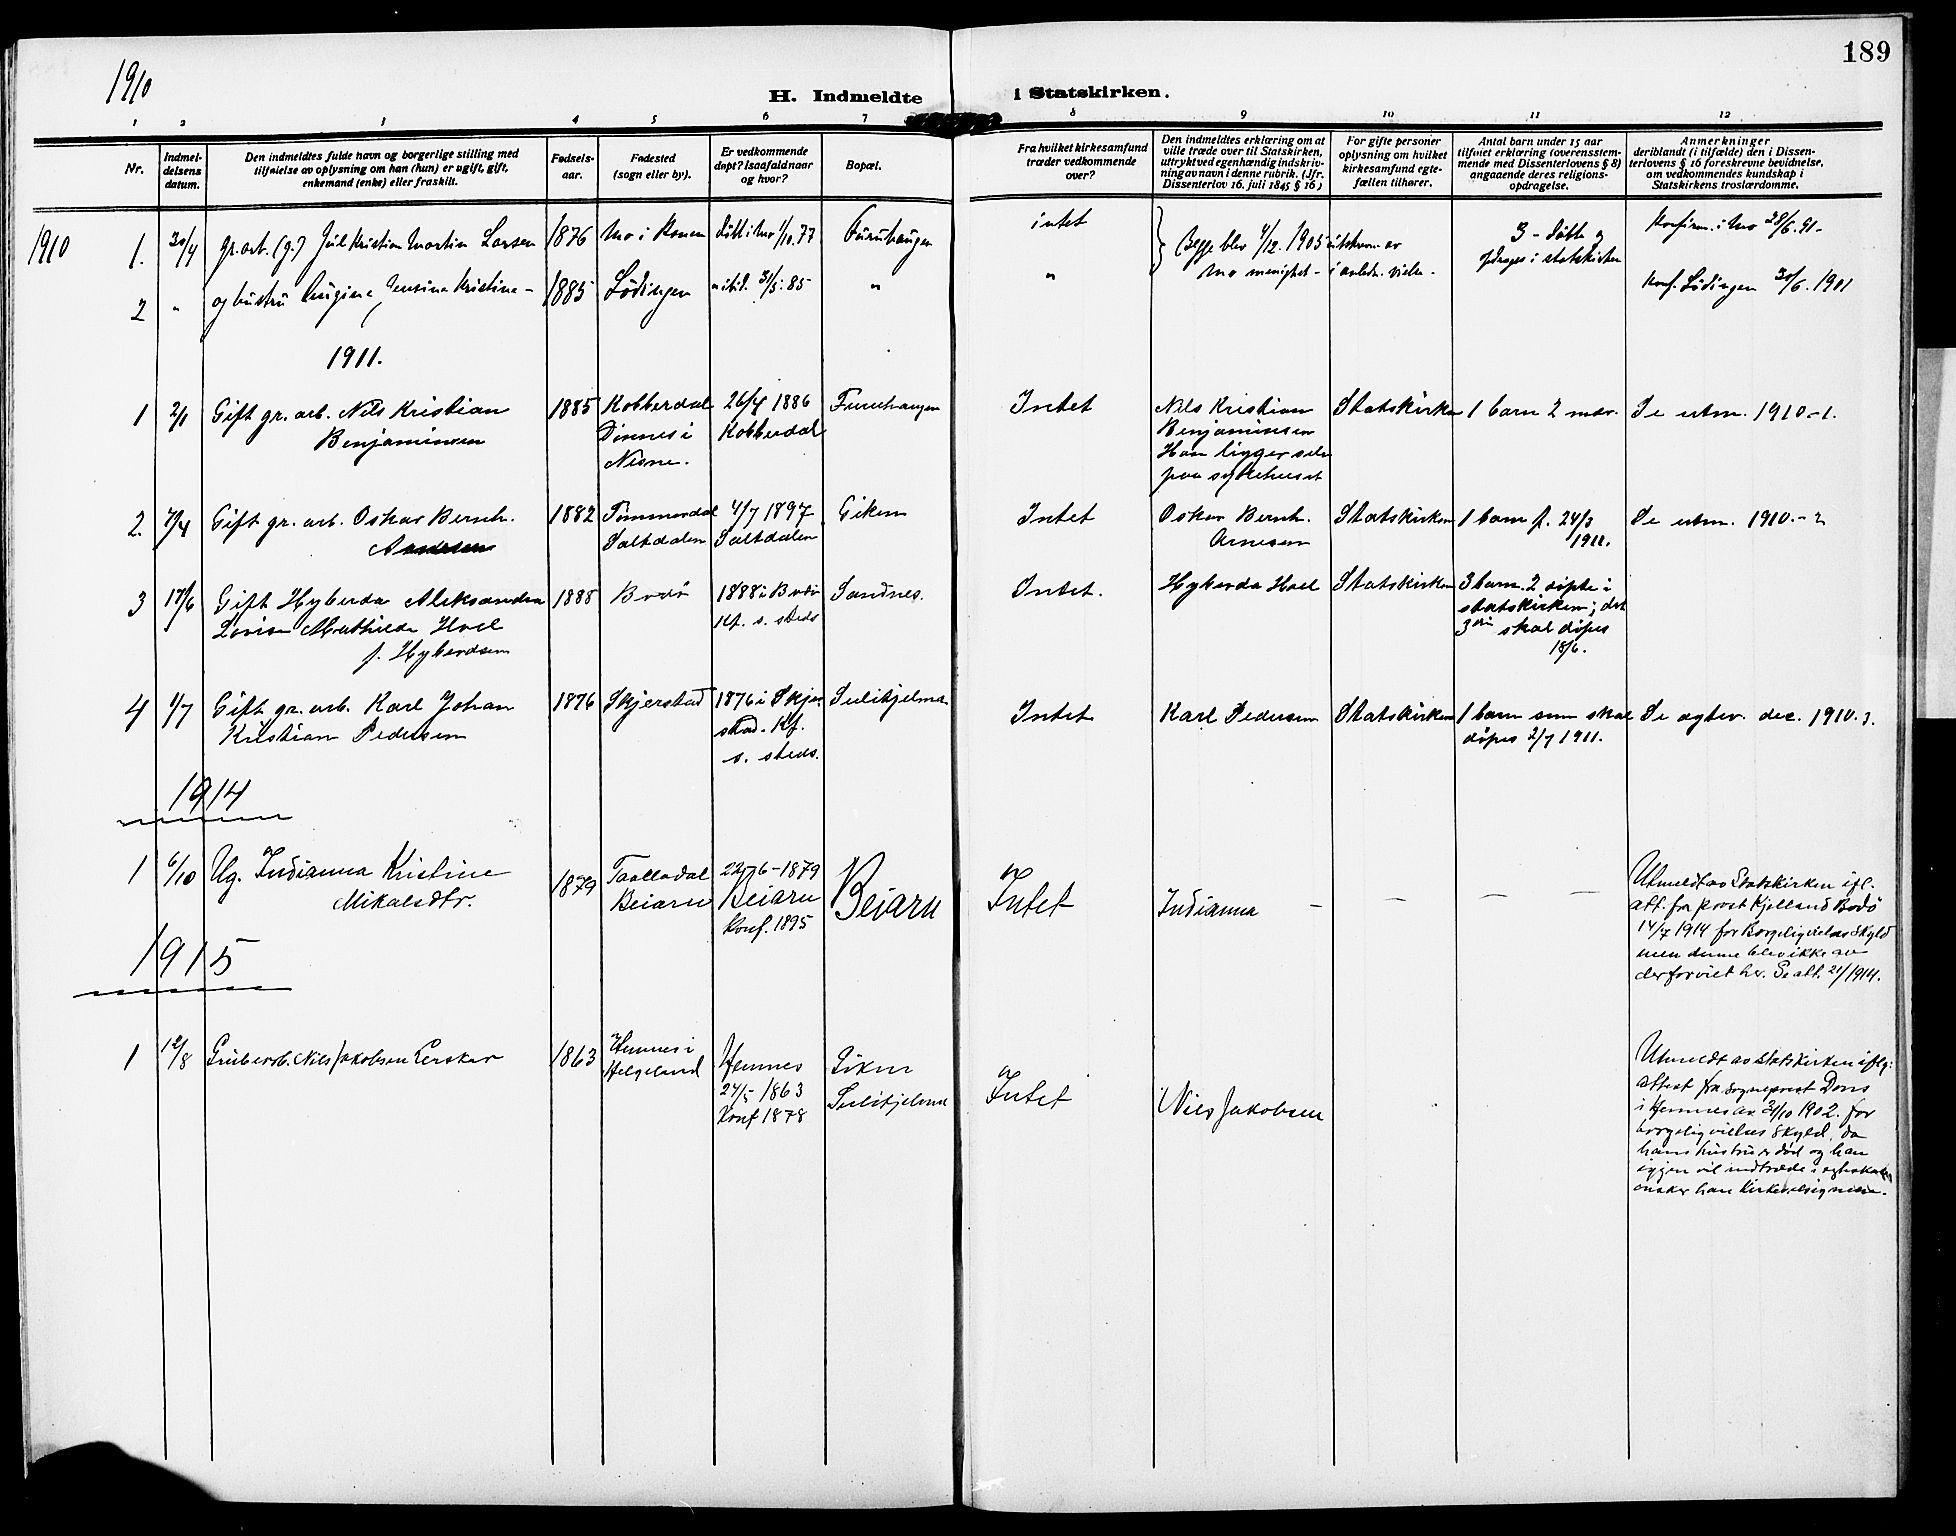 189
1910
H. Indmeldte i Statskirken.
1 2 3 4 5 6 7 8 9 10 11 12
Nr.
Indmel-
delsens
datum.
Den indmeldtes fulde navn og borgerlige stilling med
tilføielse av oplysning om han (hun) er ugift, gift,
enkemand (enke) eller fraskilt.
Fødsels-
aar.
Fødested
(sogn eller by).
Er vedkommende
døpt? Isaafald naar
og hvor?
Bopæl.
Fra hvilket kirkesamfund
træder vedkommende
over?
Den indmeldtes erklæring om at
ville træde over til Statskirken,
uttrykt ved egenhændig indskriv-
ning av navn i denne rubrik. (Jfr.
Dissenterlov 16. juli 1845 § 16)
For gifte personer
oplysning om hvilket
kirkesamfund egte-
fællen tilhører.
Antal barn under 15 aar
tilføiet erklæring (overensstem-
mende med Dissenterlovens § 8)
angaaende deres religions-
opdragelse.
Anmerkninger
deriblandt (i tilfælde) den i Dissen-
terlovens § 16 foreskrevne bevidnelse,
om vedkommendes kundskap i
Statskirkens troslærdomme.
1910
1. 30/4 gr. arb. (g.) Jul Kristian Martin Larsen 1876 Mo i Ranen døbt i Mo 1/10.77 Furuhaugen intet
Begge blev 4/12. 1905 utskrevn. av
Mo menighet - i anledn. vielse -
3 - døbte og
opdrages i statskirken
Konfirm. i Mo 28/6.91 -
2 " og hustru Jensine Kristine - 1885 Lødingen 31/5.85 " " Konf. Lødingen 30/6. 1901
1911.
1 2/1 Gift gr. arb. Nils Kristian
Benjaminsen
1885 Kobberdal
Dønnes i
Nesne.
26/4 1886
Kobberdal
Furuhaugen
Intet
Nils Kristian
Benjaminsen
Han ligger selv
paa sykehuset
Statskirken
1 barn 2 mdr.
Se utm. 1910-1.
2. 7/4 Gift gr. arb. Oskar Bernh.
1882
Saltdalen
4/7 1897
Saltdalen
Giken
Intet
Oskar Bernh.
Arnesen
Statskirken
1 barn f. 24/3
1911.
Se utm. 1910.-2
3 17/6 Gift Hyberda Aleksandra
Lovise Mathilde Hoel
f. Hybertsen
1888 Bodø
1888 i Bodø
Kf. s. steds
Sandnes.
Intet.
Hyberda Hoel
Statskirken
3 barn. 2 døpte i
statskirken; det
3die skal døpes
18/6.
4 1/7 Gift gr. arb. Karl Johan
Kristian Pedersen
1876 Skjerstad
1876 i Skjer
stad. Kf.
s. steds.
Sulitjelma
Intet
Karl Pedersen
Statskirken
1 barn som skal
døpes 2/7 1911.
Se dec. 1910.3.
1914
1 6/10 Ug. Indianna Kristine
Mikalsdtr.
1879
Beiarn
22/6-1879
Beiarn
Konf. 1895
Beiarn
Intet
Indianna
– – – –
Utmeldt av Statskirken ifl.
att. fra prost Kjelland Bodø
14/7 1914 for Borgelig vielses Skyld
men denne blev ikke av
derfor viet her. Se att. 21/1914.
1915
1 12/8 Grubearb. Nils Jakobsen
1863
Hemnes i
Helgeland
Hemnes
24/5 1863
Konf 1878
Giken
Sulitjelma
Intet
Nils Jakobsen
Utmeldt av statskirken iflg:
attest fra sogneprest Dons
i Hemnes av 31/10 1902. for
borgelig vielses skyld, da
hans hustru er død og han
igjen vil indtræde i
ønsker han Kirkevelsignelse.